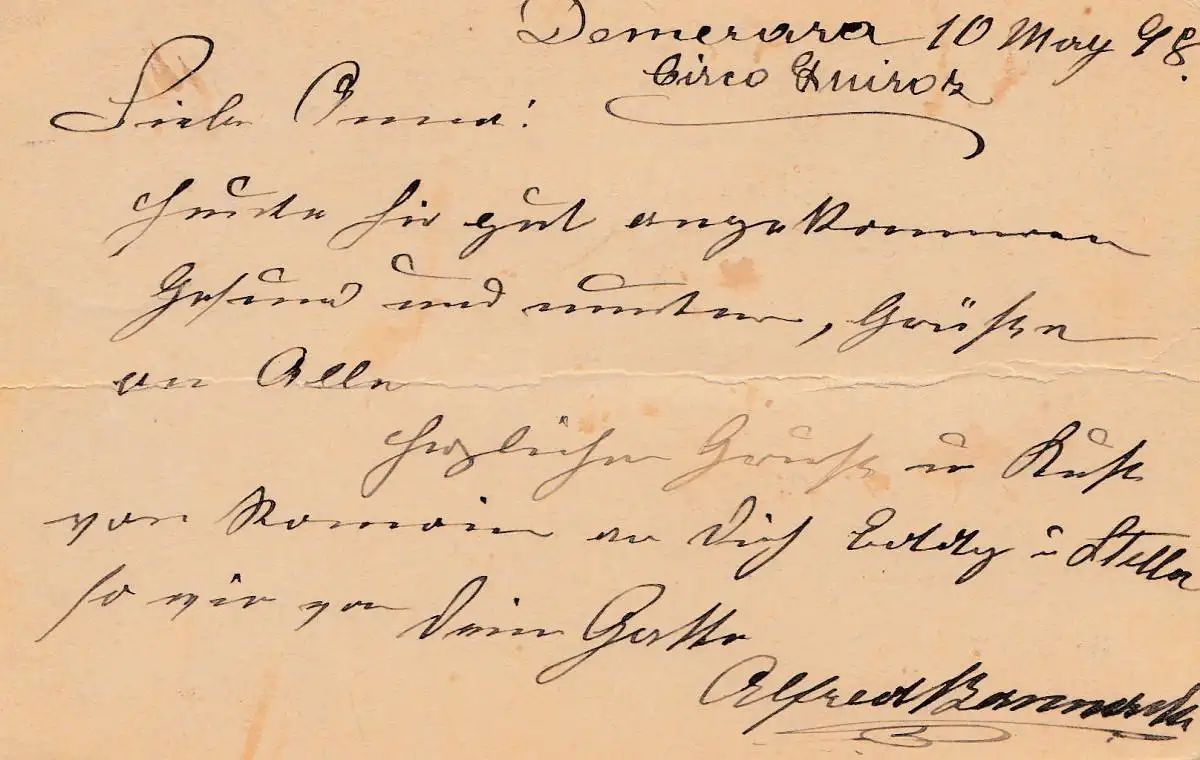 Demerara 10 May 98.
Circo Quiroz
Liebe Anna!
Heute hir gut angekommen
Gesund und munter, Grüße
an Alle
Herzlichen Gruß u Kuß
von Romain an Dich Eddy u Stella
so wie von Dein Gatte
Alfred